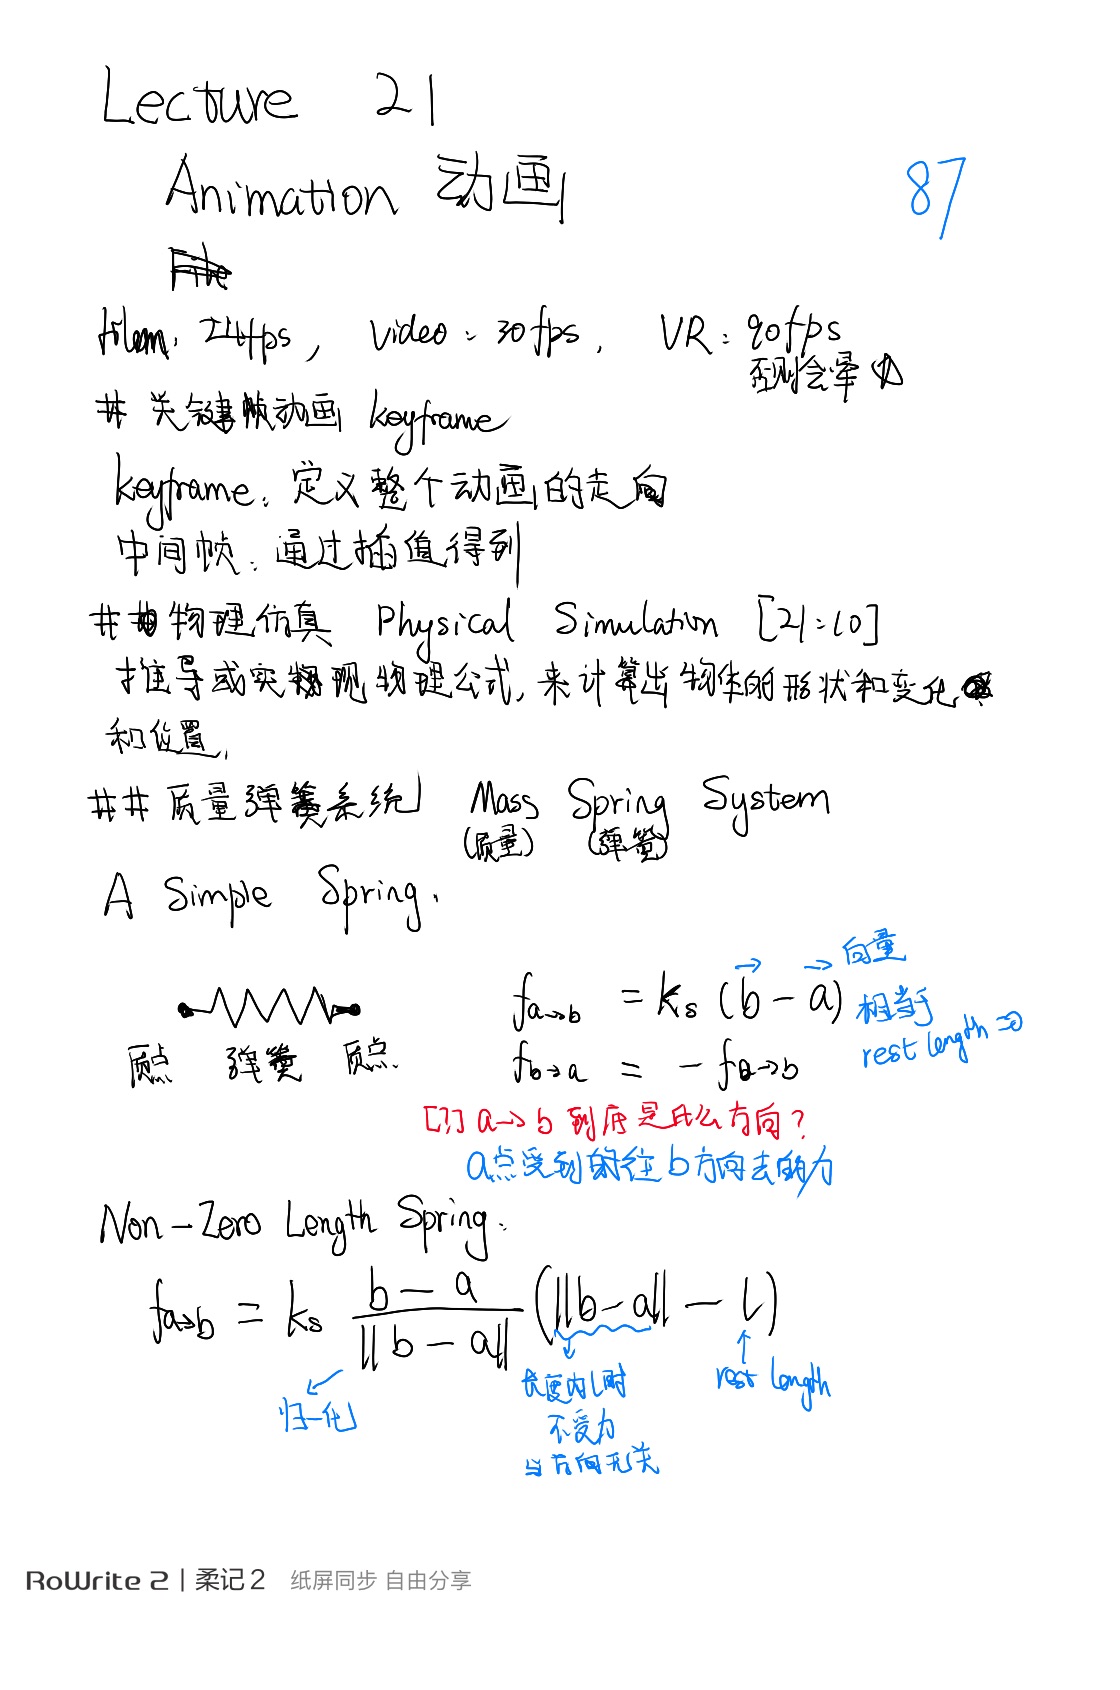 Lecture 21
Animation 动画
87
film: 24fps, Video: 30fps, VR: 90fps
否则会晕
# 关键帧动画 keyframe
keyframe: 定义整个动画的走向
中间帧: 通过插值得到
# 物理仿真 Physical Simulation [21:10]
推导或实现物理公式, 来计算出物体的形状和变化
和位置.
## 质量弹簧系统 Mass Spring System
(质量) (弹簧)
A Simple Spring.
fa→b = ks (b - a) 向量
相当于
rest length = 0
质点 弹簧 质点.
fb→a = - fa→b
[?] a→b 到底是什么方向?
a点受到的往b方向去的力
Non-Zero Length Spring.
fa→b = ks (b - a) / ||b - a|| (||b - a|| - l)
归一化
长度为l时
不受力
与方向无关
rest length
RoWrite 2 | 柔记 2 纸屏同步 自由分享